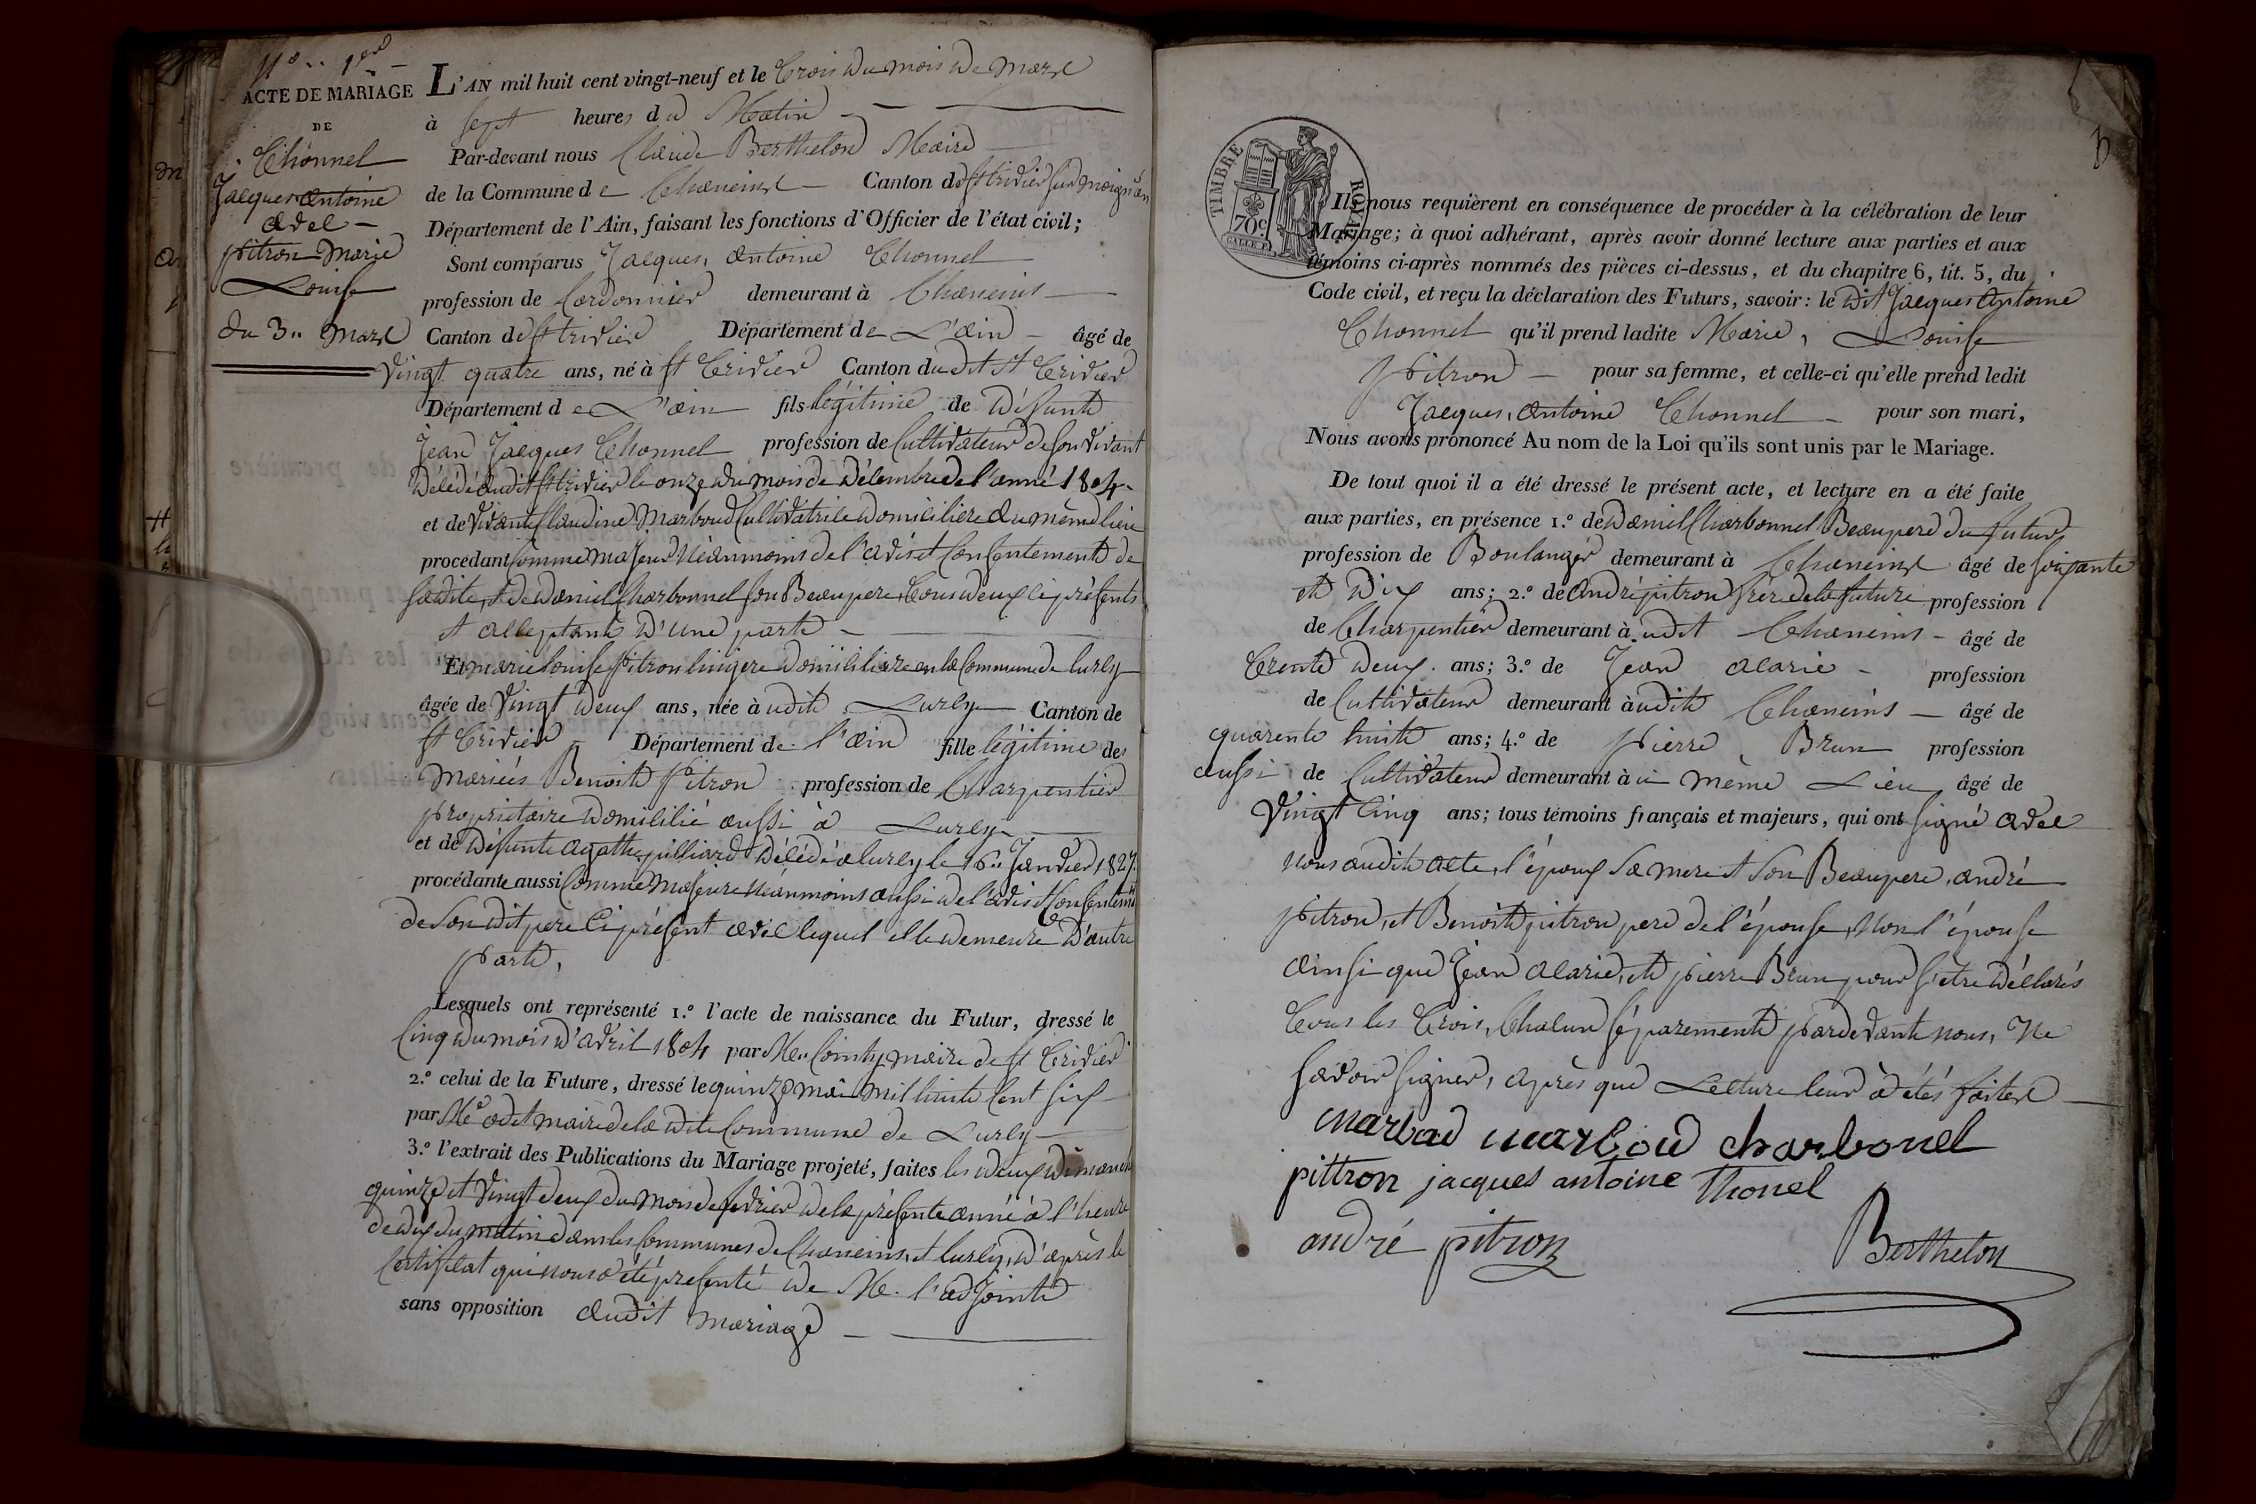 N° 1er
ACTE DE MARIAGE
DE
Thonnel
Jacques Antoine
avec
pitron Marie
Louise
du 3 Mars
L'AN mil huit cent vingt-neuf et le trois du mois de Mars
à sept heures du Matin
Par-devant nous Claude Berthelon Maire
de la Commune de Chaneins Canton de St trivier sur moignan
Département de l'Ain, faisant les fonctions d'Officier de l'état civil;
Sont comparus Jacques, antoine Thonnel
profession de Cordonnier demeurant à Chaneins
Canton de St trivier Département de L'ain âgé de
Vingt quatre ans, né à St Trivier Canton dudit St Trivier
Département de L'ain fils légitime de défunt
Jean Jacques Thonnel profession de Cultivateur de son vivant
décédé audit St trivier le onze du mois de décembre de l'anné 1804
et de vivante Claudine Marboud Cultivatrice domiciliere du même lieu
procedant Comme majeur Néanmoins de l'avis et Consentement de
sadite, et de daniel Charbonnel son Beaupere, tous deux ci présents
et acceptant d'une part
Et marie louise pitron lingere domiciliaire en la Commune de lurcy
âgée de Vingt deux ans, née à udit Lurcy Canton de
St Trivier Département de l'ain fille légitime des
mariés Benoit pitron profession de Charpentier
propriétaire domicilié aussi à Lurcy
et de défunte agathe pilliard décédé a lurcy le 16 Janvier 1827.
procédante aussi Comme Majeure néanmoins aussi de l'avis et Consentemt
de Son dit pere ci présent avec lequel elle demeure d'autre
part,
Lesquels ont représenté 1.° l'acte de naissance du Futur, dressé le
Cinq du mois d'avril 1804 par Mr maire de St Trivier
2.° celui de la Future, dressé le quinze mai mil huit Cent six
par Mr maire de la dite Commune de Lurcy
3.° l'extrait des Publications du Mariage projeté, faites les deux dimanche
quinze et Vingt deux du mois de fevrier de la présente anné à l'heure
de dix du matin dans les Communes de Chaneins, et lurcy, d'après le
Certificat qui nous a été présenté de Mr. l'adjoint
sans opposition audit mariage
TIMBRE ROYAL
70c.
Ils nous requièrent en conséquence de procéder à la célébration de leur
Mariage; à quoi adhérant, après avoir donné lecture aux parties et aux
témoins ci-après nommés des pièces ci-dessus, et du chapitre 6, tit. 5, du
Code civil, et reçu la déclaration des Futurs, savoir: le dit Jacques Antoine
Thonnel qu'il prend ladite Marie, Louise
pitron pour sa femme, et celle-ci qu'elle prend ledit
Jacques, antoine Thonnel pour son mari,
Nous avons prononcé Au nom de la Loi qu'ils sont unis par le Mariage.
De tout quoi il a été dressé le présent acte, et lecture en a été faite
aux parties, en présence 1.° de daniel Charbonnel Beaupere du futur
profession de Boulanger demeurant à Chaneins âgé de soixante
et dix ans; 2.° de André pitron frere de la future profession
de Charpentier demeurant à udit Chaneins âgé de
trente deux ans; 3.° de Jean alarie profession
de Cultivateur demeurant à udit Chaneins âgé de
quarente huit ans; 4.° de pierre Brun profession
aussi de Cultivateur demeurant à u même Lieu âgé de
Vingt Cinq ans; tous témoins français et majeurs, qui ont signé avec
nous audit acte, l'époux Sa mere et Son Beaupere, andré
pitron, et Benoit pitron pere de l'épouse, Non l'épouse
ainsi que Jean alarie, et pierre Brun pour s'etre déclarés
tous les trois, Chacun séparement pardevant nous, Ne
savoir signer, après que Lecture leur a étés faites
marbad marboud charbonel
pittron jacques antoine thonel
andré pitron
Berthelon